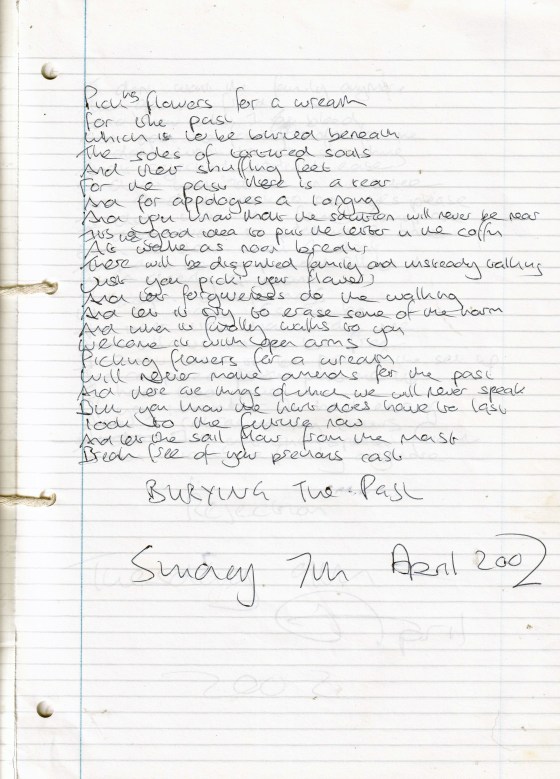 Picking flowers for a wreath
For the past
Which is to be buried beneath
The soles of tortured souls
And their shuffling feet
For the past there is a tear
And for appologies a longing
And you know that the solution will never be near
It's the good idea to put the letter in the coffin
At's wake as noon breaks
There will be disjointed family and unsteady walking
Just you pick your flowers
And let forgiveness do the walking
And let it try to erase some of the harm
And when it finally walks to you
Welcome it with open arms
Picking flowers for a wreath
Will never make amends for the past
And there are things of which we will never speak
But you know the hurt does have to last
Look to the future now
And let the sail flow from the mast
Break free of your previous cast
BURYING The Past
Sunday 7th April 2002